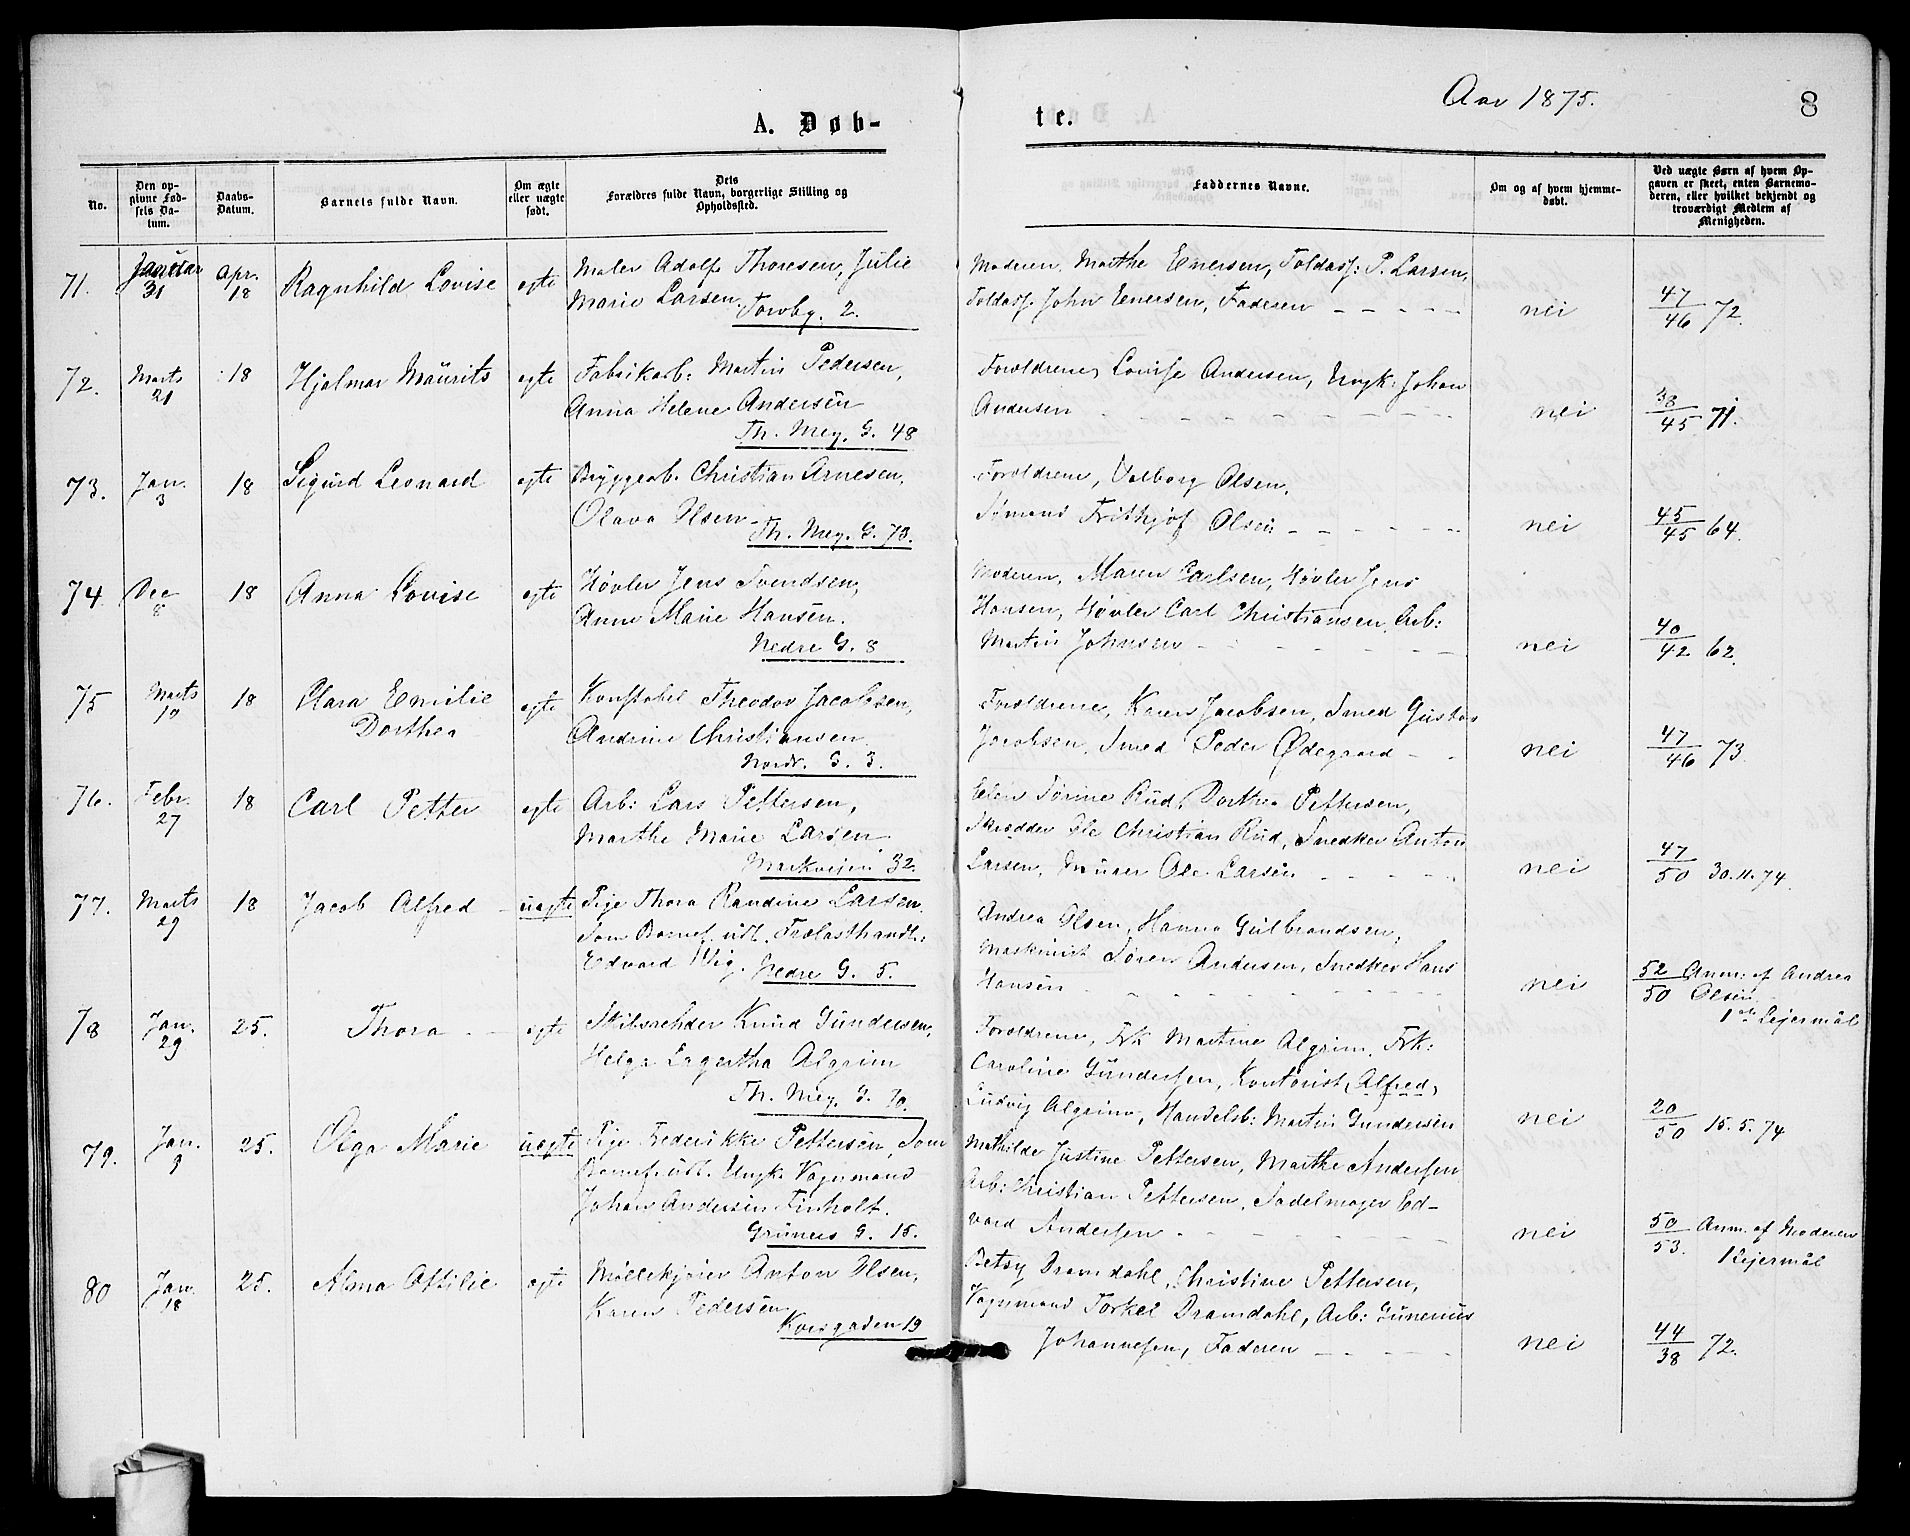 Aar 1875.
8
A. Døb-
te.
No.
Den op-
givne Fød-
sels Da-
tum.
Daabs-
Datum.
Barnets fulde Navn.
Om ægte
eller uægte
født.
Dets
Forældres fulde Navn, borgerlige Stilling og
Opholdssted.
Faddernes Navne.
Om og af hvem hjemme-
døbt.
Ved uægte Børn af hvem Op-
gaven er skeet, enten Barnemo-
deren, eller hvilket bekjendt og
troværdigt Medlem af
Menigheden.
71. Januar 31 Apr. 18 Ragnhild Lovise egte Maler Adolf Thoresen, Julie
Marie Larsen.
Torvbg. 2.
Moderen, Marthe Enersen, Toldass: P. Larsen,
Toldass. John Enersen, Faderen - - - - -
nei 47/46 72.
72. Marts 21 18 Hjalmar Maurits egte Fabrikarb: Martin Pedersen,
Anna Helene Andersen
Th. Mey. G. 48
Forældrene, Lovise Andersen, Ungk: Johan
Andersen
nei 38/45 71.
73. Jan. 3 18 Sigurd Leonard egte Bryggearb. Christian Arnesen,
Olava Olsen
Th. Mey. G. 73.
Forældrene, Valborg Olsen,
Sømand Frithjof Olsen - - - - -
nei 45/45 64.
74. Dec 8 18 Anna Lovise egte Høvler Jens Svendsen,
Anne Marie Hansen.
Nedre G. 8
Moderen, Maren Carlsen, Høvler Jens
Hansen, Høvler Carl Christiansen, Arb:
Martin Johnsen
nei 40/42 62.
75 Marts 10 18 Clara Emilie
Dorthea
egte Konstabel Theodor Jacobsen,
Andrine Christiansen
Nordr. G. 3.
Forældrene, Karen Jacobsen, Smed Gustav
Jacobsen, Smed Peder Ødegaard - -
nei 47/46 73.
76. Febr. 27 18 Carl Petter egte Arb: Lars Pettersen,
Marthe Marie Larsen
Markveien 32.
Elen Sørine Rud, Dorthea Pettersen,
Skrædder Ole Christian Rud, Snedker Anton
Larsen, Murer Ole Larsen - - - - -
nei 47/50 30.11.74.
77. Marts 29 18 Jacob Alfred uægte Pige Thora Randine Larsen.
Som Barnef. udl. Frelasthandl:
Edvard Wig. Nedre G. 5.
Andrea Olsen, Hanna Gulbrandsen,
Maskinist Søren Andersen, Snedker Hans
Hansen
nei 52/50 Anm: af Andrea
Olsen
1ste Lejermål
78 Jan. 29 25. Thora egte Knud Gundersen,
Helga Lagertha Algrim
Th. Mey. G. 70.
Forældrene, Frk Martine Algrim, Frk:
Caroline Gundersen, Kontorist Alfred
Ludvig Algrim, Handelsb: Martin Gundersen
nei 20/50 15.5.74
79. Jan. 9 25. Olga Marie uægte Pige Frederikke Pettersen, Som
Barnef. udl. Ungk. Vognmand
Johan Andersen Finholt.
Grüners G. 15.
Mathilde Justine Pettersen, Marthe Andersen
Arb: Christian Pettersen, Sadelmager Ed-
vard Andersen
nei 50/53. Anm. af Moderen
1 Lejermål
80 Jan. 18 25. Alma Ottilie egte Møllekjører Anton Olsen,
Karen Pedersen
Korsgaden 19
Betsy Dramdahl, Christine Pettersen,
Vognmand Torkel Dramdahl, Arb: Gunerius
Johannesen, Faderen - - - - -
nei 44/38 72.